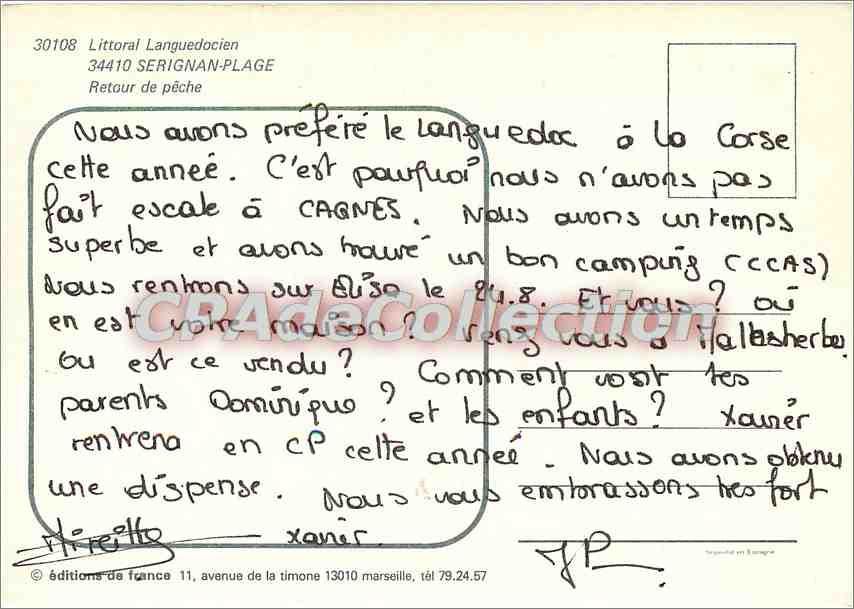 30108 Littoral Languedocien
34410 SERIGNAN-PLAGE
Retour de pêche
Nous avons préféré le Languedoc à la Corse
cette anneé. C'est pourquoi nous n'avons pas
fait escale à CAGNES. Nous avons un temps
superbe et avons trouvé un bon camping (CCAS)
Nous rentrons sur le 24.8. Et vous? où
en est votre maison? Venez vous à Malesherbes
ou est ce vendu? Comment vont tes
parents Dominique? et les enfants? Xavier
rentrera en CP cette anneé. Nous avons obtenu
une dispense. Nous vous embrassons tres fort
Mireille Xavier JP
CPAdeCollection
© éditions de france 11, avenue de la timone 13010 marseille, tél 79.24.57